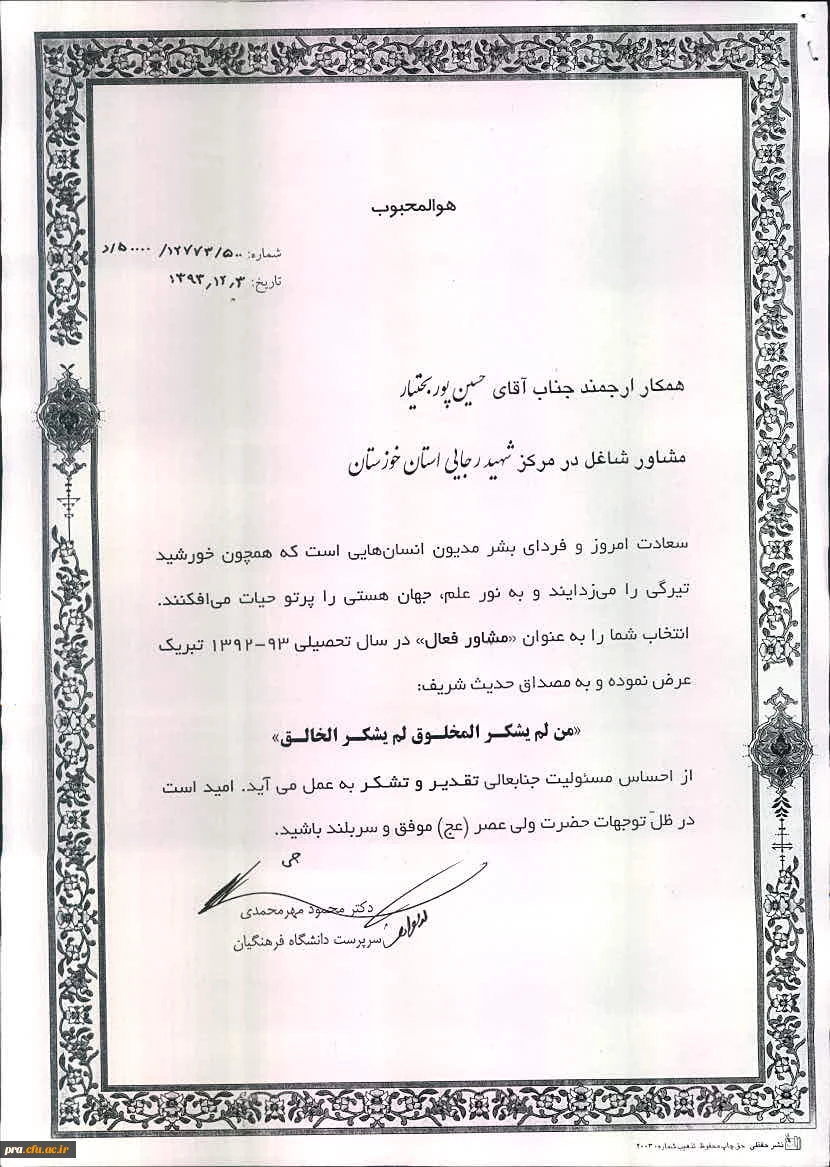 هوالمحبوب
شماره: ۵۰۰۰۰/۱۲۷۷۳/۵۰۰/د
تاریخ: ۱۳۹۳٫۱۲٫۳
همکار ارجمند جناب آقای حسین پوربختیار
مشاور شاغل در مرکز شهید رجایی استان خوزستان
سعادت امروز و فردای بشر مدیون انسان‌هایی است که همچون خورشید
تیرگی را می‌زدایند و به نور علم، جهان هستی را پرتو حیات می‌افکنند.
انتخاب شما را به عنوان «مشاور فعال» در سال تحصیلی ۹۳-۱۳۹۲ تبریک
عرض نموده و به مصداق حدیث شریف:
«من لم یشکر المخلوق لم یشکر الخالق»
از احساس مسئولیت جنابعالی تقدیر و تشکر به عمل می آید. امید است
در ظلّ توجهات حضرت ولی عصر (عج) موفق و سربلند باشید.
دکتر محمود مهرمحمدی
سرپرست دانشگاه فرهنگیان
نشر حفظی حق چاپ محفوظ. تذهیب شماره ۲۰۰۳۰
pra.cfu.ac.ir